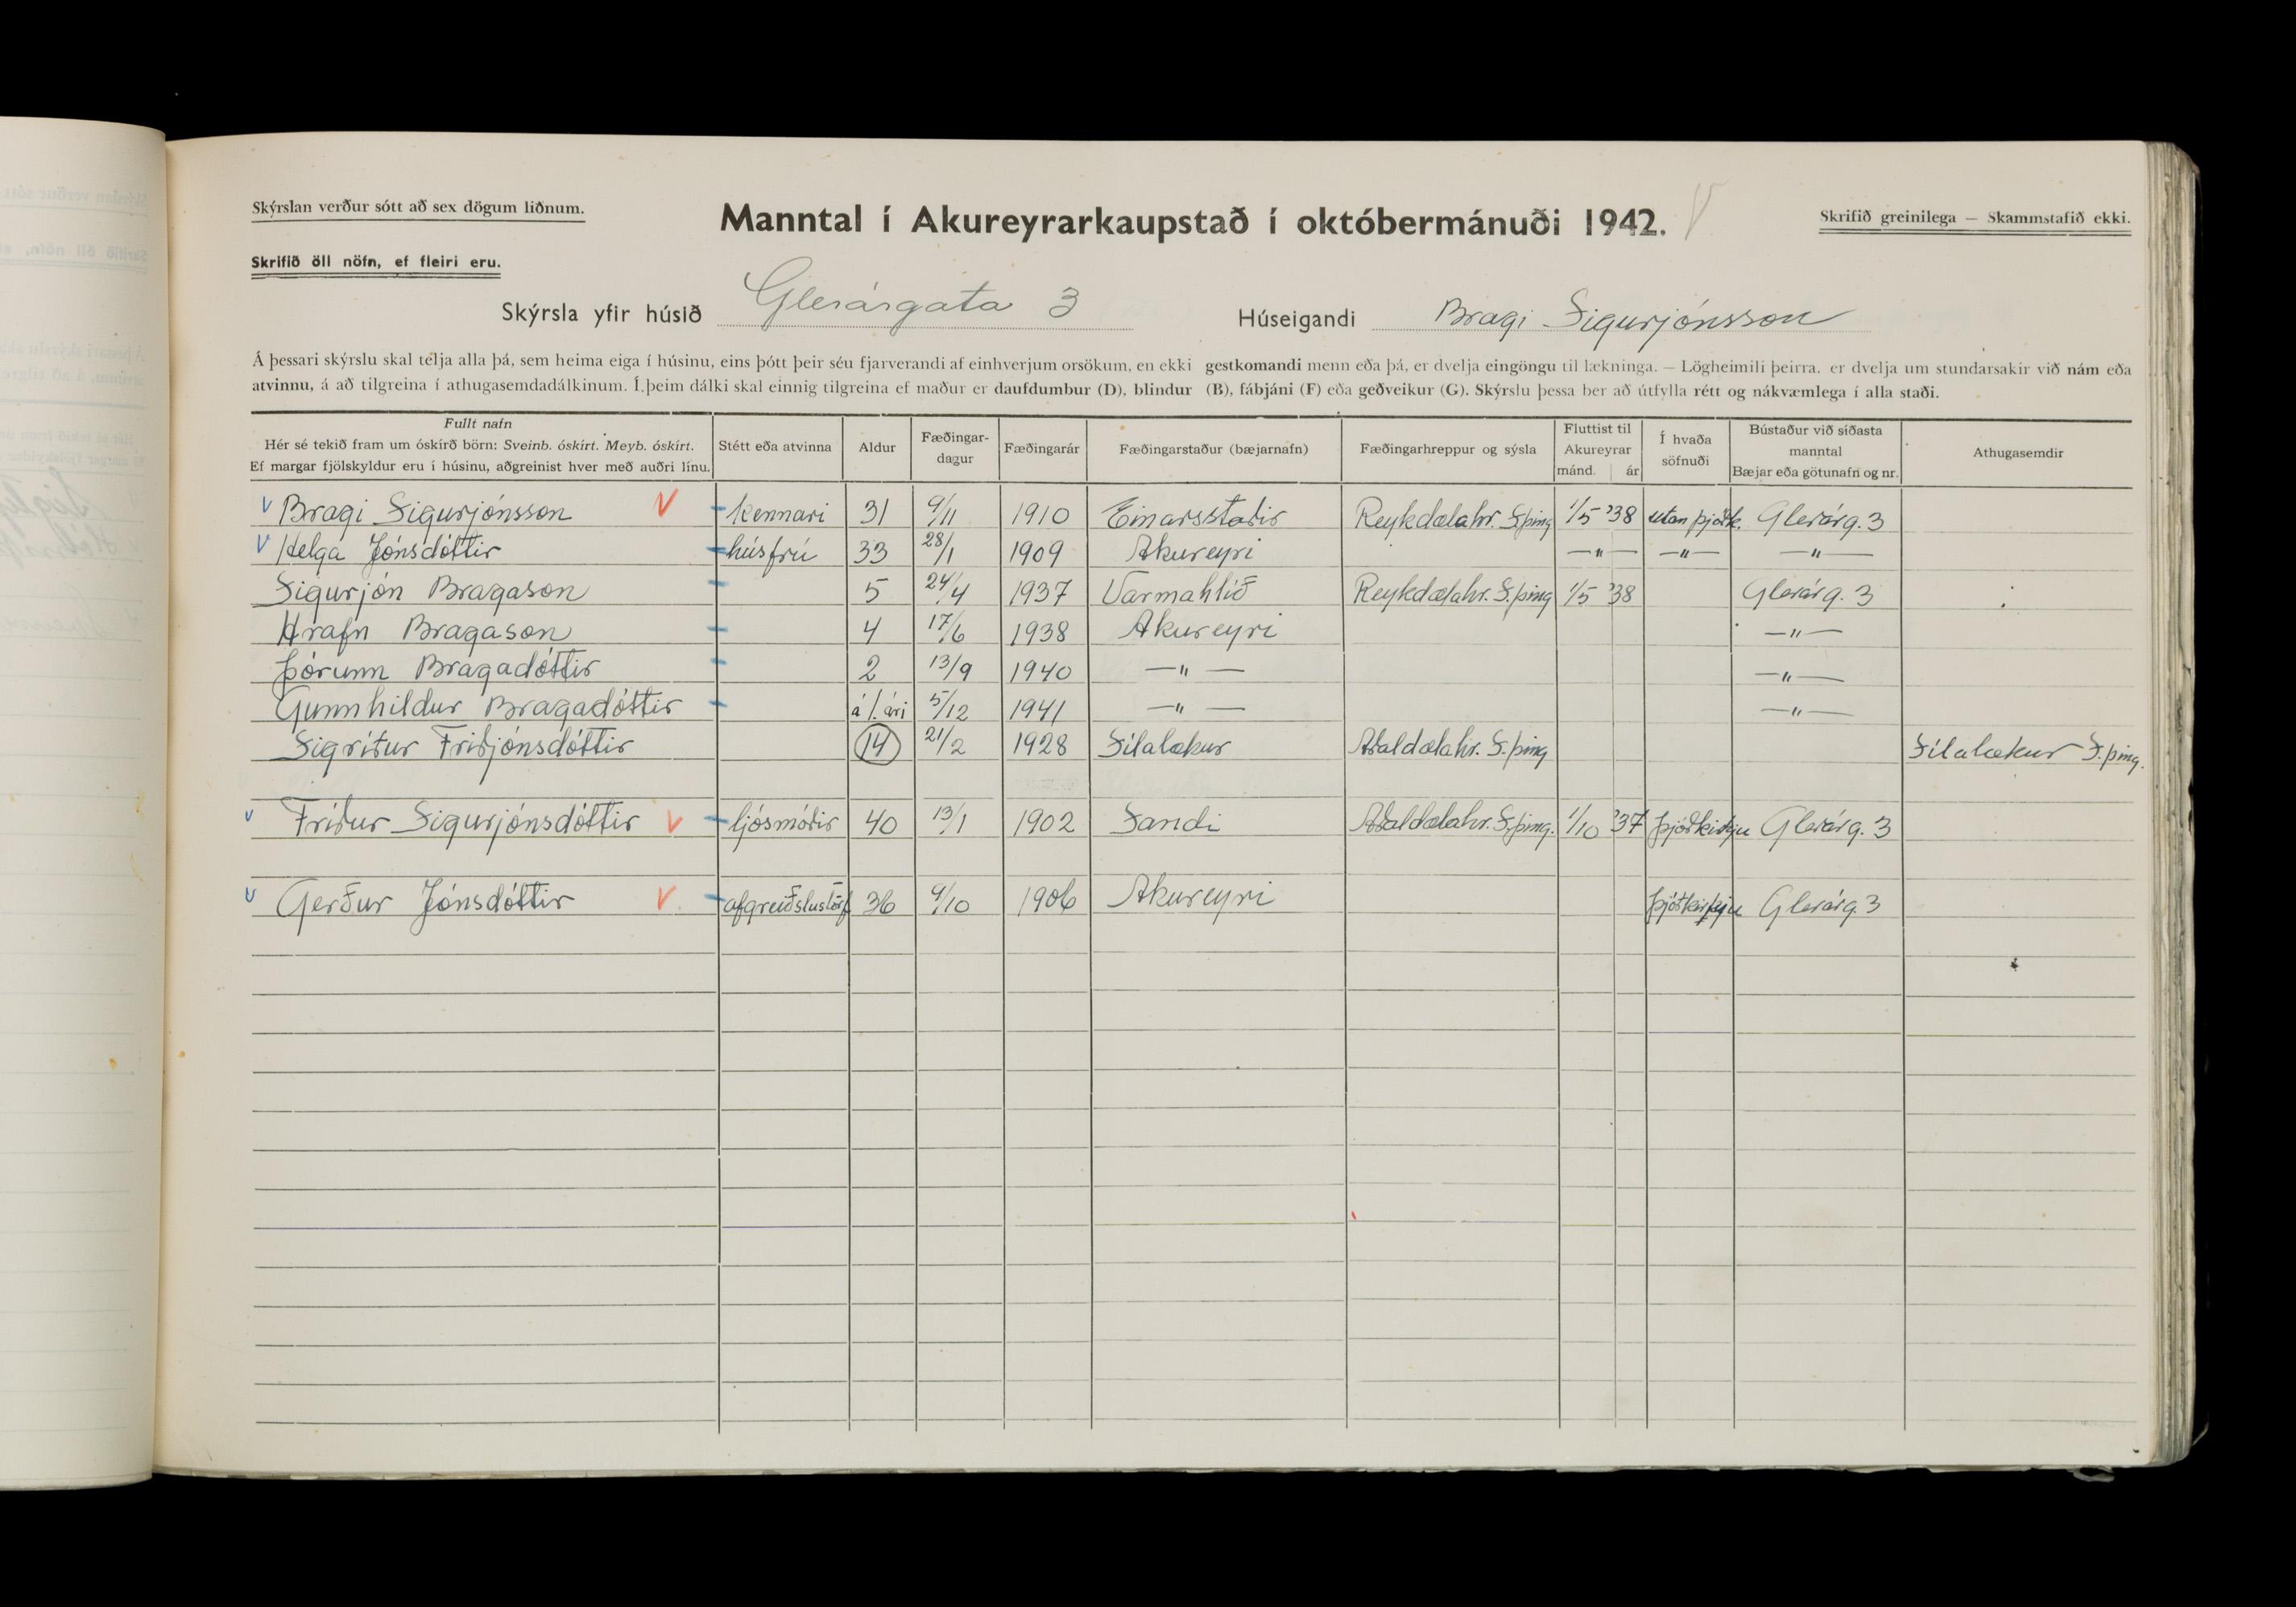 Skýrslan verður sótt að sex dögum liðnum.
Manntal í Akureyrarkaupstað í októbermánuði 1942. V
Skrifið greinilega — Skammstafið ekki.
Skrifið öll nöfn, ef fleiri eru.
Skýrsla yfir húsið Glerárgata 3 Húseigandi Bragi Sigurjónsson
Á þessari skýrslu skal telja alla þá, sem heima eiga í húsinu, eins þótt þeir séu fjarverandi af einhverjum orsökum, en ekki gestkomandi menn eða þá, er dvelja eingöngu til lækninga. — Lögheimili þeirra. er dvelja um stundarsakir við nám eða
atvinnu, á að tilgreina í athugasemdadálkinum. Í þeim dálki skal einnig tilgreina ef maður er daufdumbur (D), blindur (B), fábjáni (F) eða geðveikur (G). Skýrslu þessa ber að útfylla rétt og nákvæmlega í alla staði.
Fullt nafn
Hér sé tekið fram um óskírð börn: Sveinb. óskírt. Meyb. óskírt.
Ef margar fjölskyldur eru í húsinu, aðgreinist hver með auðri línu.
Stétt eða atvinna
Aldur
Fæðingar-
dagur
Fæðingarár
Fæðingarstaður (bæjarnafn)
Fæðingarhreppur og sýsla
Fluttist til
Akureyrar
mánd. ár
Í hvaða
söfnuði
Bústaður við síðasta
manntal
Bæjar eða götunafn og nr.
Athugasemdir
V Bragi Sigurjónsson V kennari 31 9/11 1910 Einarsstaðir Reykdælahr. S.þing 1/5 '38 utan þjóðk. Glerárg. 3
V Helga Jónsdóttir húsfrú 33 28/1 1909 Akureyri —"— —"— —"—
Sigurjón Bragason 5 24/4 1937 Varmahlíð Reykdælahr. S.þing 1/5 '38 Glerárg. 3
Hrafn Bragason 4 17/6 1938 Akureyri —"—
Þórunn Bragadóttir 2 13/9 1940 —"— —"—
Gunnhildur Bragadóttir á 1. ári 5/12 1941 —"— —"—
Sigríður Friðjónsdóttir 14 21/2 1928 Sílalækur Aðaldælahr. S.þing Sílalækur S.þing.
V Fríður Sigurjónsdóttir V ljósmóðir 40 13/1 1902 Sandi Aðaldælahr. S.þing. 1/10 '37 þjóðkirkju Glerárg. 3
V Gerður Jónsdóttir V afgreiðslustörf 36 9/10 1906 Akureyri þjóðkirkju Glerárg. 3